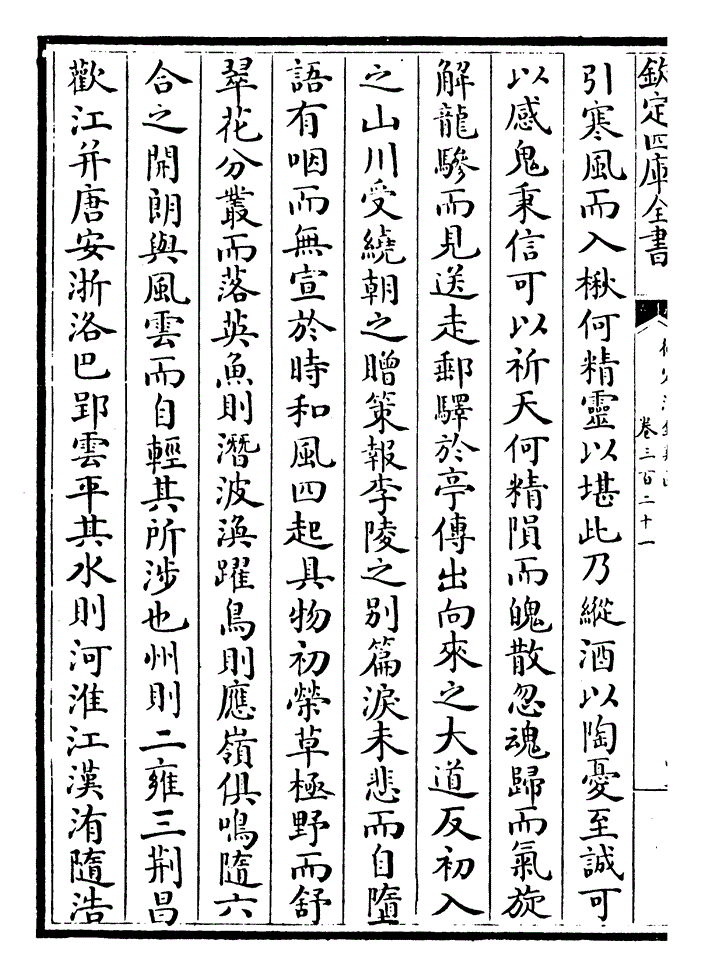 欽定四庫全書
卷三百二十一
引寒風而入楸何精靈以堪此乃縱酒以陶憂至誠可
以感鬼秉信可以祈天何精隕而魄散忽魂歸而氣旋
解龍驂而見送走郵驛於亭傳出向來之大道反初入
之山川受繞朝之贈策報李陵之别篇淚未悲而自墮
語有咽而無宣於時和風四起具物初榮草極野而舒
翠花分叢而落英魚則潛波渙躍鳥則應嶺俱鳴隨六
合之開朗與風雲而自輕其所涉也州則二雍三荆昌
歡江并唐安浙洛巴郢雲平其水則河淮江漢洧隨浩